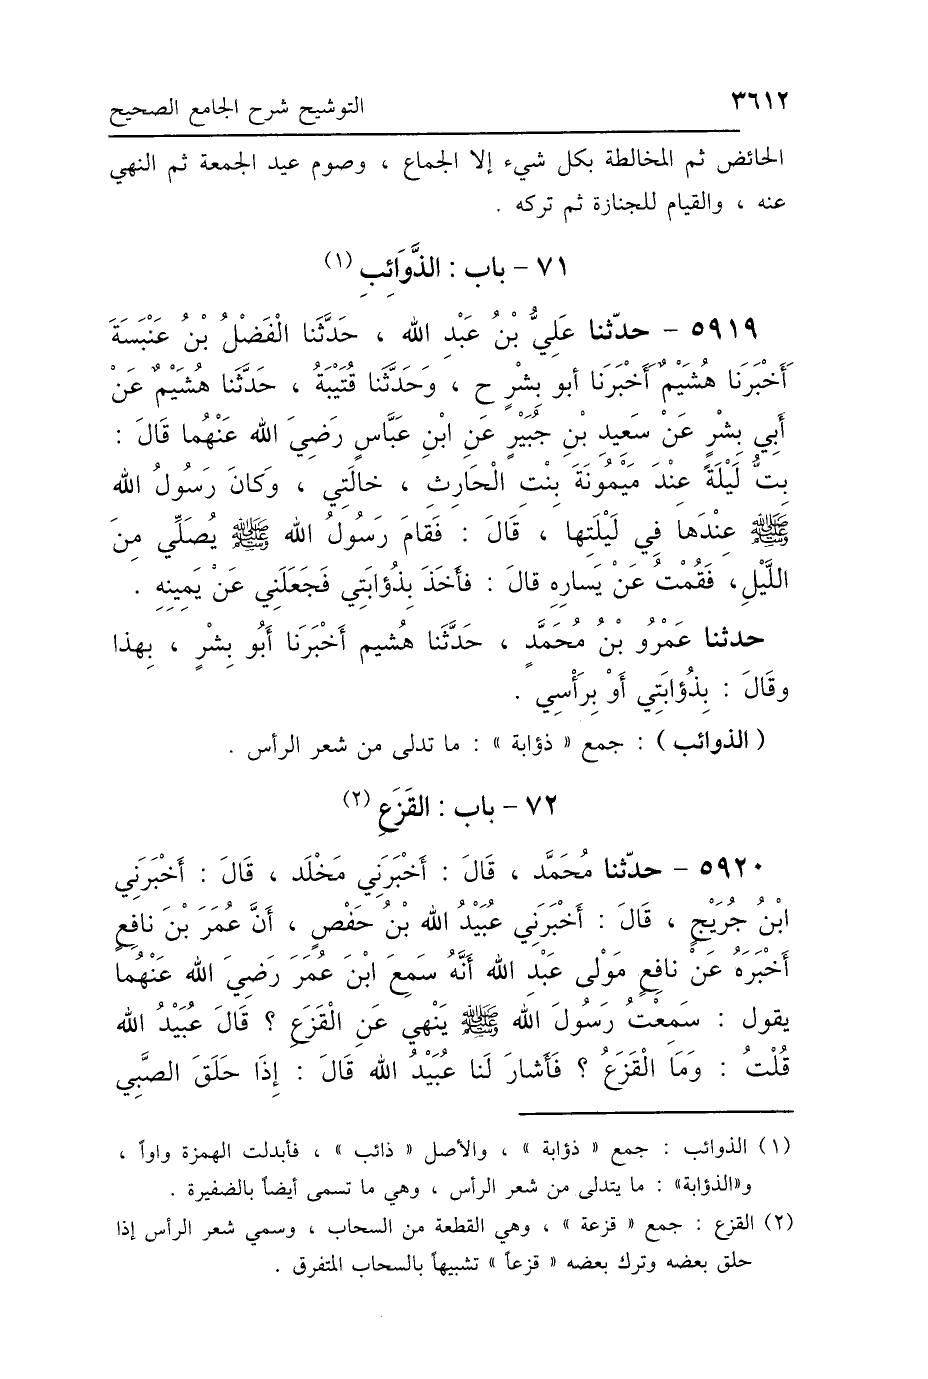 ٣٦١٢ التوشيح شرح الجامع الصحيح
الحائض ثم المخالطة بكل شيء إلا الجماع ، وصوم عيد الجمعة ثم النهي
عنه ، والقيام للجنازة ثم تركه .
٧١ - باب : الذَّوَائِبِ (١)
٥٩١٩ - حدّثنا عَلِيُّ بْنُ عَبْدِ الله ، حَدَّثَنا الْفَضْلُ بْنُ عَنْبَسَةَ
أَخْبَرَنَا هُشَيْمٌ أَخْبَرَنَا أبو بِشْرٍ ح ، وَحَدَّثَنَا قُتَيْبَةُ ، حَدَّثَنَا هُشَيْمٌ عَنْ
أَبِي بِشْرٍ عَنْ سَعِيدِ بْنِ جُبَيْرٍ عَنِ ابْنِ عَبَّاسٍ رَضِيَ الله عَنْهُما قَالَ :
بِتُّ لَيْلَةً عِنْدَ مَيْمُونَةَ بِنْتِ الْحَارِثِ ، خالَتِي ، وَكانَ رَسُولُ الله
ﷺ عِنْدَها فِي لَيْلَتِها ، قَالَ : فَقامَ رَسُولُ الله ﷺ يُصَلِّي مِنَ
اللَّيْلِ، فَقُمْتُ عَنْ يَسارِهِ قالَ : فأَخَذَ بِذُؤابَتِي فَجَعَلَنِي عَنْ يَمِينِهِ .
حدثنا عَمْرُو بْنُ مُحَمَّدٍ ، حَدَّثَنا هُشيم أَخْبَرَنا أَبُو بِشْرٍ ، بِهذا
وقَالَ : بِذُؤابَتِي أَوْ بِرَأْسِي .
( الذوائب ) : جمع « ذؤابة » : ما تدلى من شعر الرأس .
٧٢ - باب : القَزَعِ (٢)
٥٩٢٠ - حدّثنا مُحَمَّد ، قَالَ : أَخْبَرَنِي مَخْلَد ، قَالَ : أَخْبَرَنِي
ابْنُ جُرَيْجٍ ، قَالَ : أَخْبَرَنِي عُبَيْدُ الله بْنُ حَفْصٍ ، أَنَّ عُمَرَ بْنَ نافِعٍ
أَخْبَرَهُ عَنْ نافِعٍ مَوْلى عَبْدِ الله أَنَّهُ سَمِعَ ابْنَ عُمَرَ رَضِيَ الله عَنْهُما
يقول : سَمِعْتُ رَسُولَ الله ﷺ يَنْهي عَنِ الْقَزَعِ ؟ قَالَ عُبَيْدُ الله
قُلْتُ : وَمَا الْقَزَعُ ؟ فَأَشارَ لَنا عُبَيْدُ الله قَالَ : إِذَا حَلَقَ الصَّبِّي
(١) الذوائب : جمع « ذؤابة » ، والأصل « ذائب » ، فأبدلت الهمزة واواً ،
و«الذؤابة» : ما يتدلى من شعر الرأس ، وهي ما تسمى أيضاً بالضفيرة .
(٢) القزع : جمع « قزعة » ، وهي القطعة من السحاب ، وسمي شعر الرأس إذا
حلق بعضه وترك بعضه « قزعاً » تشبيهاً بالسحاب المتفرق .